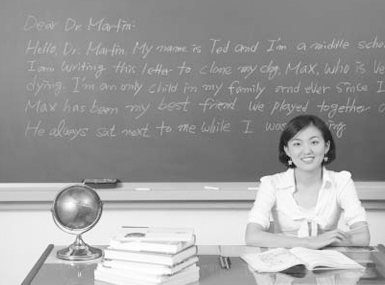 Dear Dr. Martin:
Hello, Dr. Martin. My name is Ted and I'm a middle scho
I am writing this letter to clone my dog, Max, who is ve
dying. I'm an only child in my family and ever since I
Max has been my best friend We played together
He always sat next to me while I was ing.